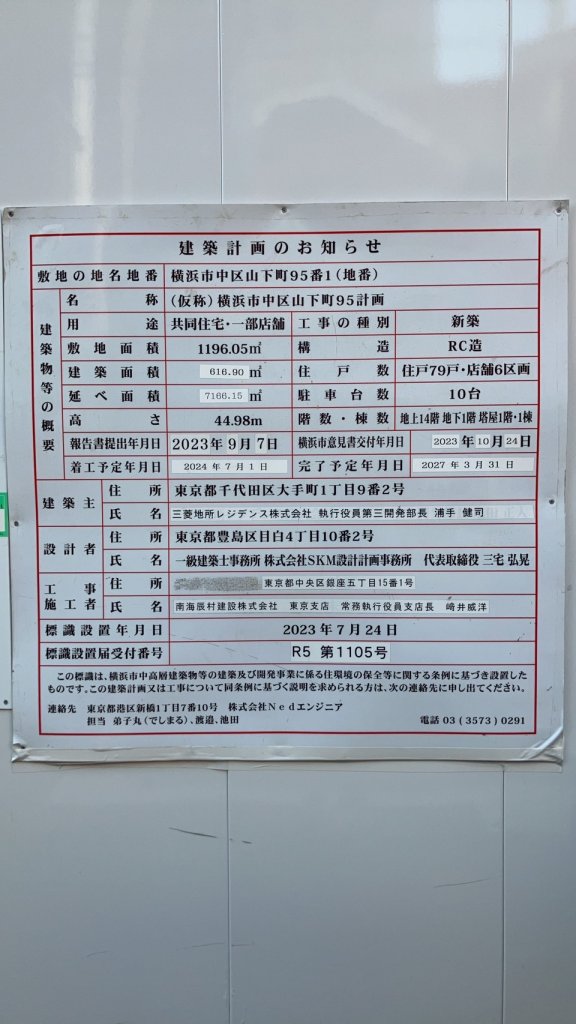 建築計画のお知らせ
敷地の地名地番 横浜市中区山下町95番1(地番)
建築物等の概要
名称 (仮称)横浜市中区山下町95計画
用途 共同住宅・一部店舗 工事の種別 新築
敷地面積 1196.05㎡ 構造 RC造
建築面積 616.90㎡ 住戸数 住戸79戸・店舗6区画
延べ面積 7166.15㎡ 駐車台数 10台
高さ 44.98m 階数・棟数 地上14階 地下1階 塔屋1階・1棟
報告書提出年月日 2023年9月7日 横浜市意見書交付年月日 2023年10月24日
着工予定年月日 2024年7月1日 完了予定年月日 2027年3月31日
建築主 住所 東京都千代田区大手町1丁目9番2号
氏名 三菱地所レジデンス株式会社 執行役員第三開発部長 浦手 健司
設計者 住所 東京都豊島区目白4丁目10番2号
氏名 一級建築士事務所 株式会社SKM設計計画事務所 代表取締役 三宅 弘晃
工事施工者 住所 東京都中央区銀座五丁目15番1号
氏名 南海辰村建設株式会社 東京支店 常務執行役員支店長 﨑井威洋
標識設置年月日 2023年7月24日
標識設置届受付番号 R5 第1105号
この標識は、横浜市中高層建築物等の建築及び開発事業に係る住環境の保全等に関する条例に基づき設置した
ものです。この建築計画又は工事について同条例に基づく説明を求められる方は、次の連絡先に申し出てください。
連絡先 東京都港区新橋1丁目7番10号 株式会社Nedエンジニア
担当 弟子丸(でしまる)、渡道、池田 電話 03(3573)0291